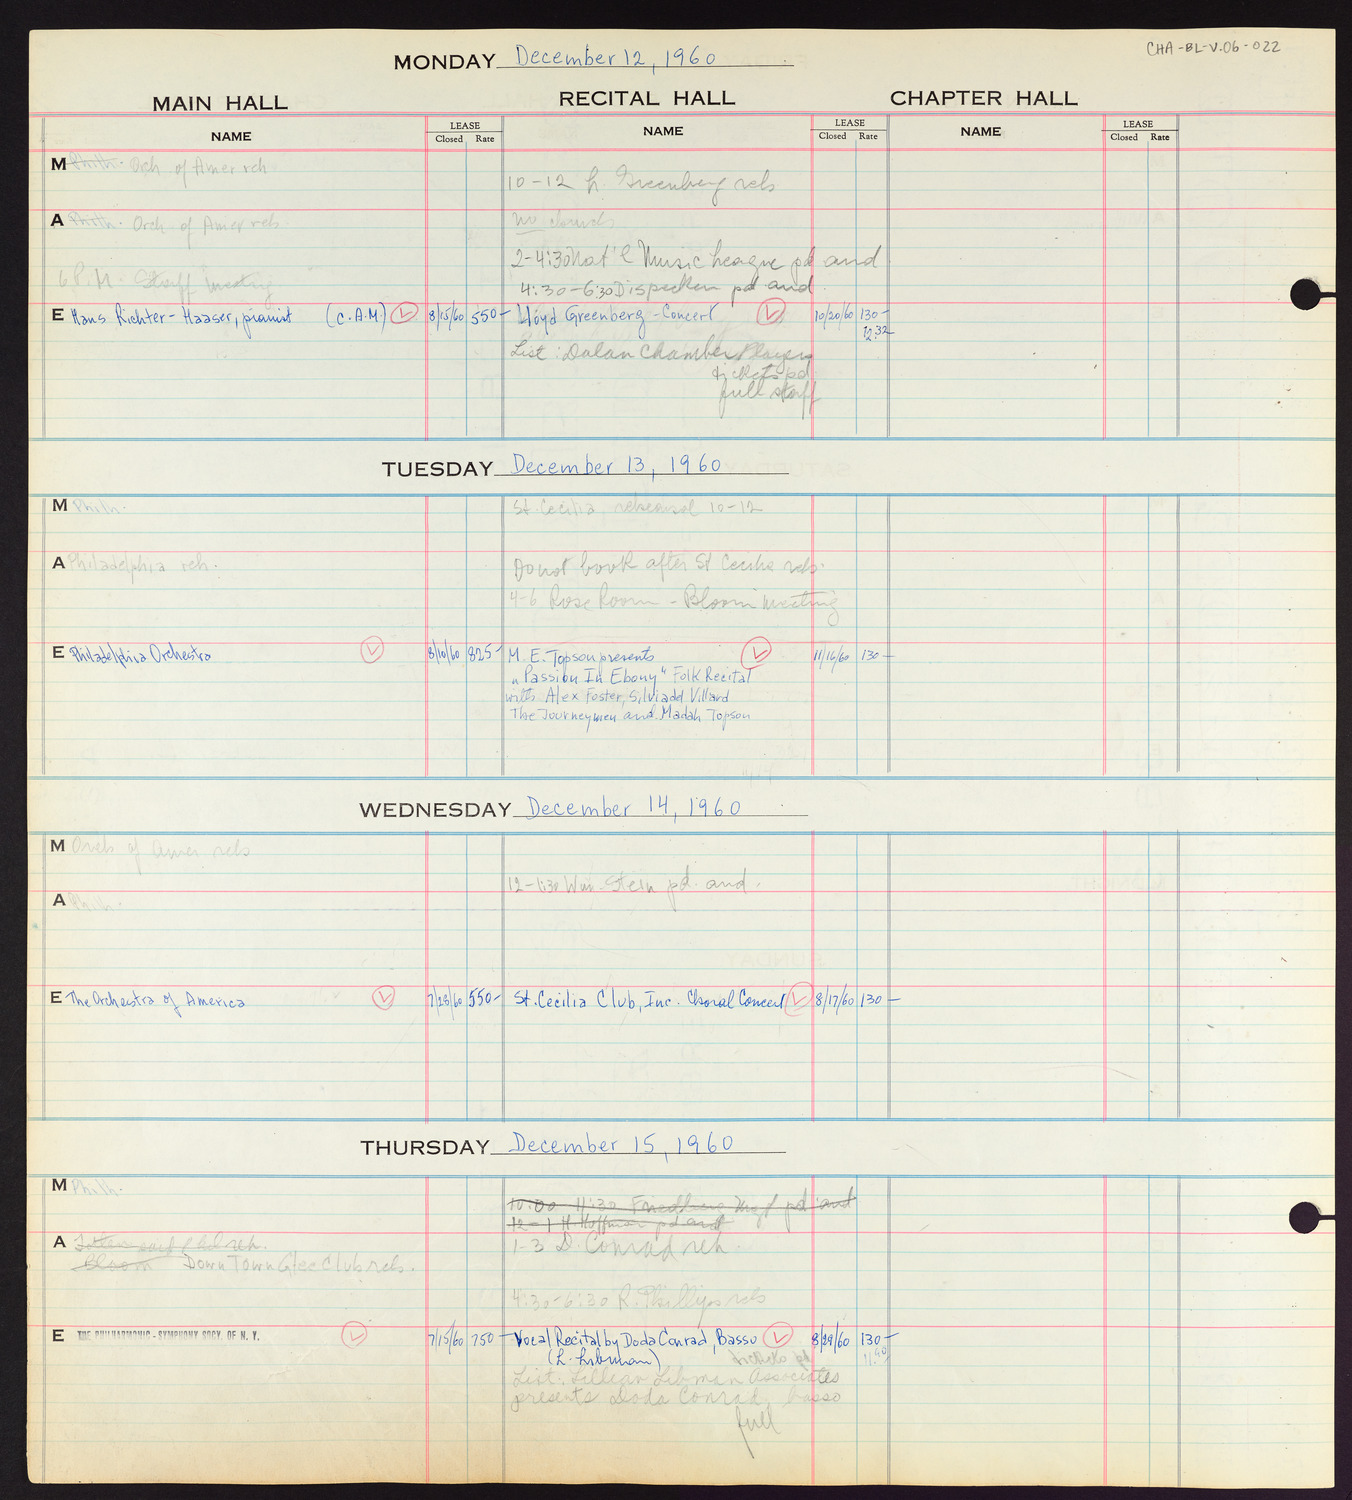 CHA-BL-V.06-022
MONDAY December 12, 1960
MAIN HALL RECITAL HALL CHAPTER HALL
NAME LEASE Closed Rate NAME LEASE Closed Rate NAME LEASE Closed Rate
M Philh. Orch of Amer reh
10-12 L. Greenberg reh
A Philh. Orch. of Amer reh.
no
2-4:30 Nat'l Music League pd aud
6 P.M. Staff meeting
4:30-6:30 Dispeker pd aud
E Hans Richter-Haaser, pianist (C.A.M.) 8/15/60 550- Lloyd Greenberg - Concert 10/20/60 130-
12.32
List: Dalan Chamber Players
tickets pd
full staff
TUESDAY December 13, 1960
M Philh. St. Cecilia rehearsal 10-12
A Philadelphia reh. Do not book after St Cecilia reh.
4-6 Rose Room - Bloom meeting
E Philadelphia Orchestra 8/10/60 825- M. E. Topson presents 11/16/60 130-
"Passion In Ebony" Folk Recital
with Alex Foster, Silviadd Villard
The Journeymen and Madah Topson
WEDNESDAY December 14, 1960
M Orch of Amer reh
12-1:30 Wm. Stein pd. aud.
A Philh.
E The Orchestra of America 7/28/60 550- St. Cecilia Club, Inc. Choral Concert 8/17/60 130-
THURSDAY December 15, 1960
M Philh.
10:00 11:30 Friedberg Mgt pd aud
12-1 H Hoffman pd aud
A reh.
1-3 D. Conrad reh.
Bloom Down Town Glee Club reh.
4:30-6:30 R. Phillips reh
E THE PHILHARMONIC-SYMPHONY SOCY. OF N. Y. 7/15/60 750- Vocal Recital by Doda Conrad, Basso 8/29/60 130-
(L. Libman) tickets pd 11.90
List: Lillian Libman Associates
presents Doda Conrad, basso
full